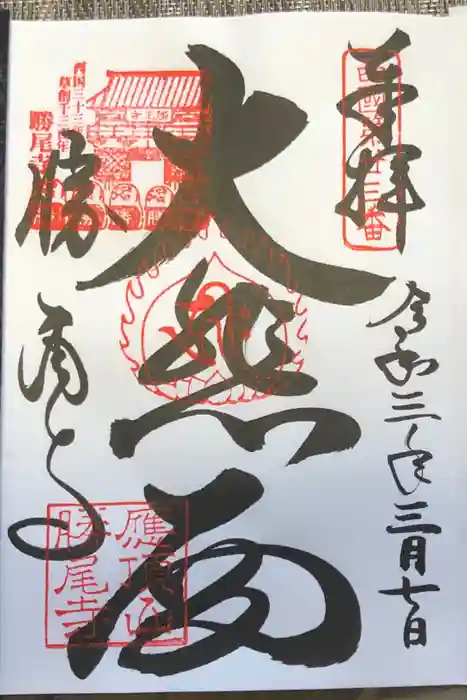 奉拝
西國第廿三番
令和三年三月七日
大悲閣
西国三十三所
草創千三百年
勝尾寺
勝尾寺
應頂山
勝尾寺